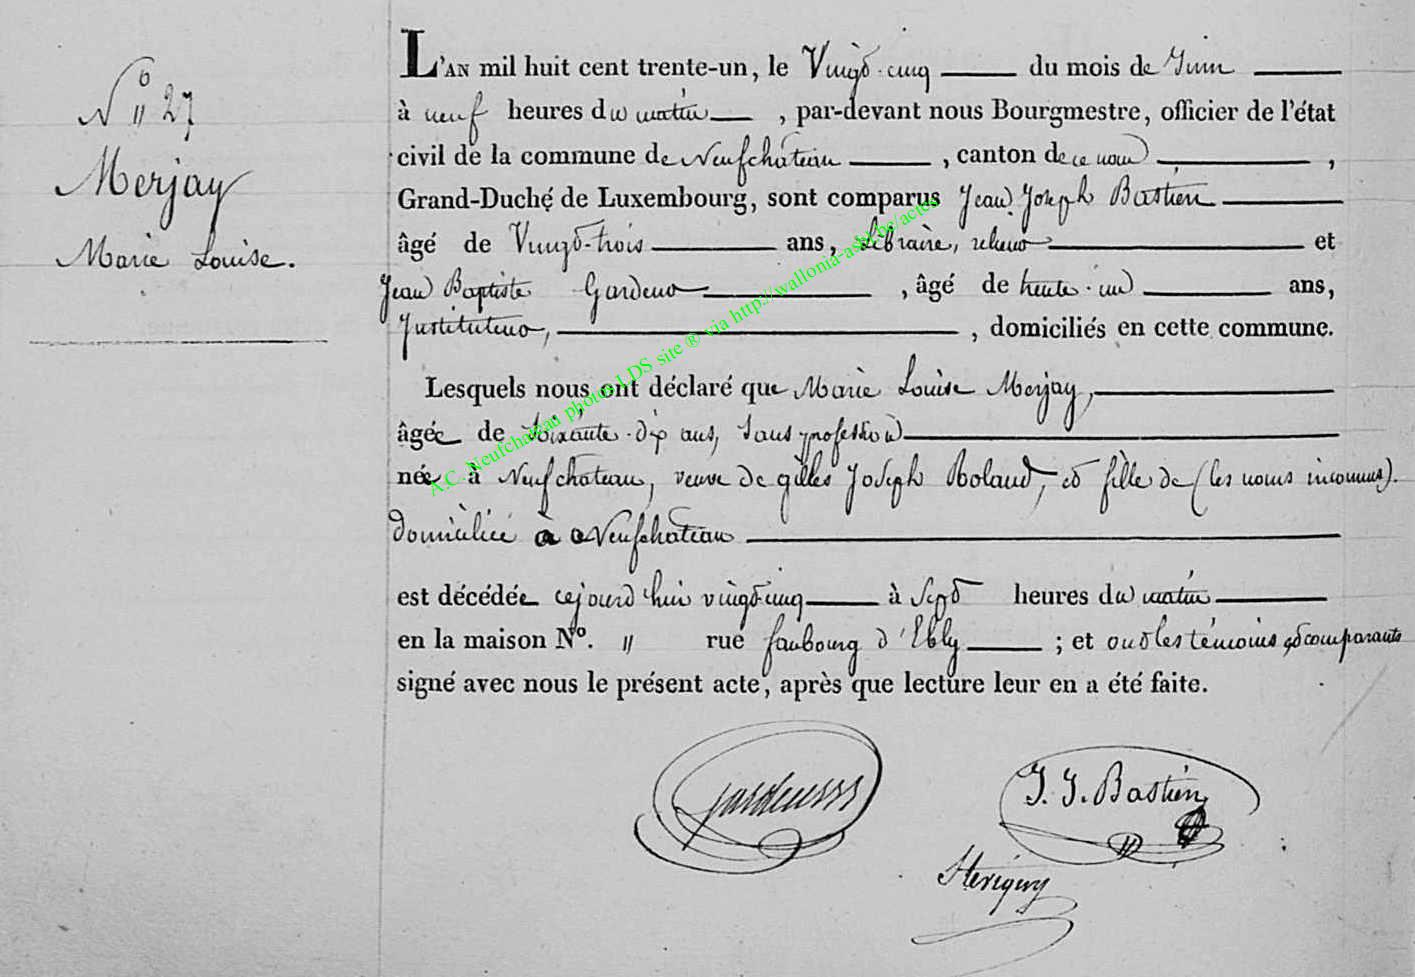 N° 27
Merjay
Marie Louise.
L'AN mil huit cent trente-un, le Vingt-cinq du mois de Juin
à neuf heures du matin, par-devant nous Bourgmestre, officier de l'état
civil de la commune de Neufchâteau, canton de ce nom,
Grand-Duché de Luxembourg, sont comparus Jean Joseph Bastien
âgé de Vingt-trois ans, Libraire, relieur et
Jean Baptiste, âgé de trente-un ans,
Instituteur, domiciliés en cette commune.
Lesquels nous ont déclaré que Marie Louise Merjay,
âgée de soixante-dix ans, sans profession
née à Neufchâteau, veuve de gilles Joseph Roland, et fille de (les noms inconnus).
domiciliée à Neufchateau
est décédée cejourd'hui vingt cinq à sept heures du matin
en la maison N°. " rue faubourg d'Ebly; et ont les témoins et comparants
signé avec nous le présent acte, après que lecture leur en a été faite.
J. J. Bastien
A.C. Neufchateau photos LDS site ® via http://wallonia-asbl.be/actes